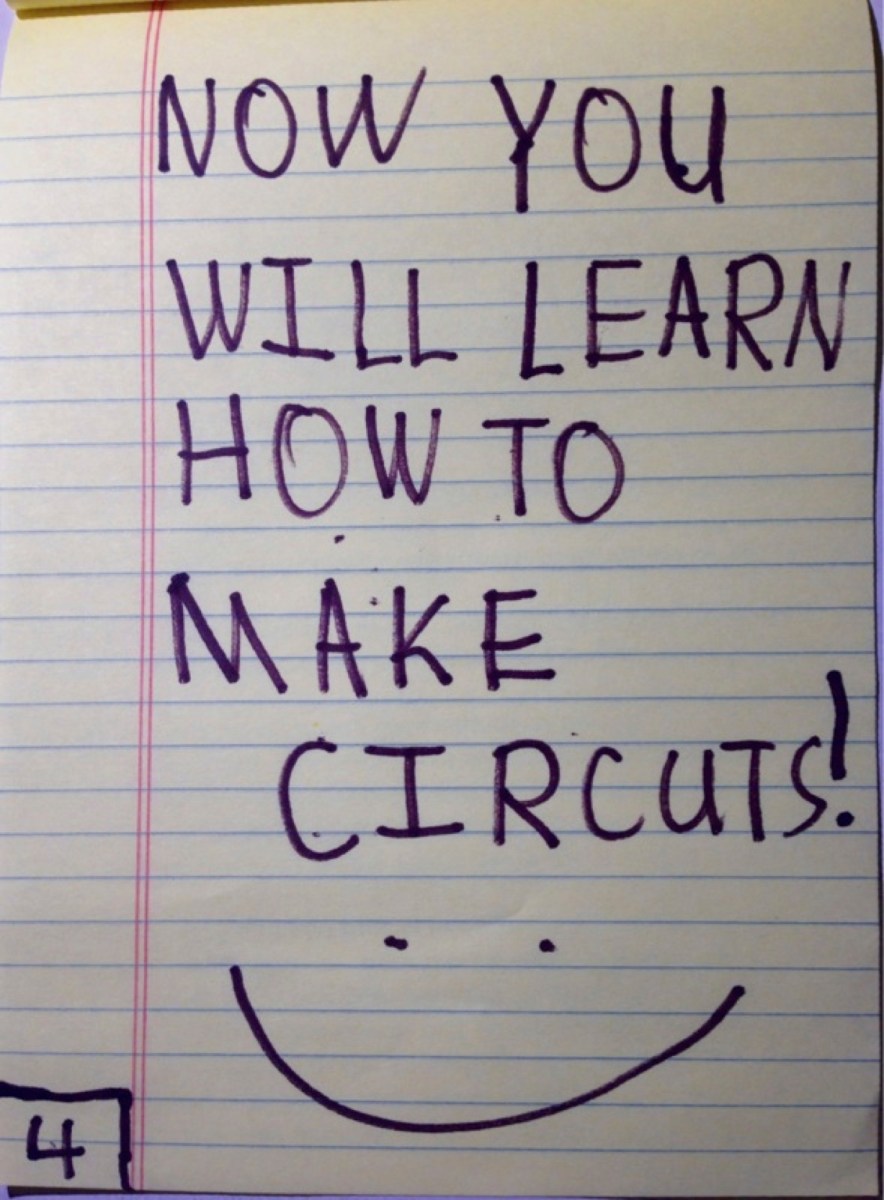 NOW YOU
WILL LEARN
HOW TO
MAKE
CIRCUTS!
4